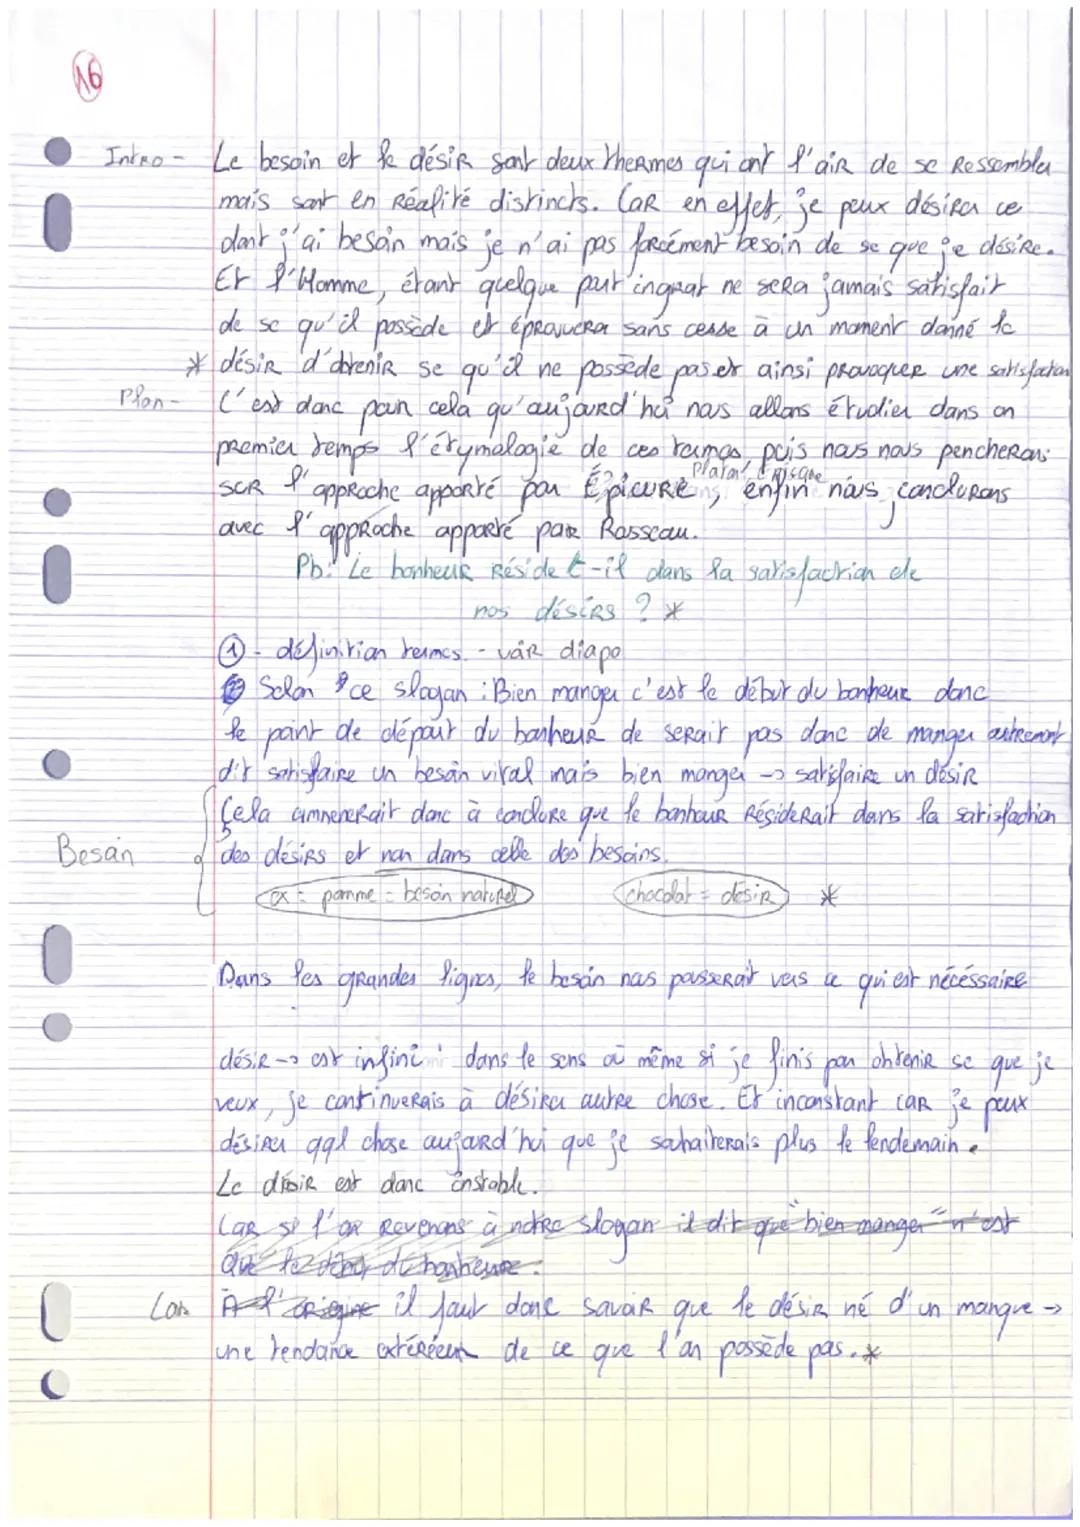 16
Intro - Le besoin et le désir sont deux thermes qui ont l'air de se ressembler
mais sont en réalité distincts. Car en effet, je peux désirer ce
dont j'ai besoin mais je n'ai pas forcément besoin de se que je désire.
Et l'Homme, étant quelque part ingrat ne sera jamais satisfait
de se qu'il possède et éprouvera sans cesse à un moment donné le
* désir d'obtenir se qu'il ne possède pas et ainsi provoquer une satisfaction
Plan - C'est donc pour cela qu'aujourd'hui nous allons étudier dans un
premier temps l'étymologie de ces termes, puis nous nous pencherons
Platon,
sur l'approche apporté par Épicure, enfin nous conclurons
avec l'approche apporté par Rosseau.
Pb: Le bonheur réside t-il dans la satisfaction de
nos désirs ? *
① - définition termes. - voir diapo
Selon ce slogan : Bien manger c'est le début du bonheur donc
le point de départ du bonheur de serait pas donc de manger autrement
dit satisfaire un besoin vital mais bien manger -> satisfaire un désir
Cela ammenerait donc à conclure que le bonheur résiderait dans la satisfaction
Besoin des désirs et non dans celle des besoins.
ex : pomme = besoin naturel chocolat = désir *
Dans les grandes lignes, le besoin nous pousserait vers ce qui est nécéssaire
désir -> est infini : dans le sens où même si je finis par obtenir se que je
veux, je continuerais à désirer autre chose. Et inconstant car je peux
désirer qql chose aujourd'hui que je souhaiterais plus le lendemain.
Le désir est donc instable.
Car si l'on revenons à notre slogan il dit que "bien manger" n'est
que le début du bonheur.
À l'origine il faut donc savoir que le désir né d'un manque ->
une tendance extérieur de ce que l'on possède pas. *